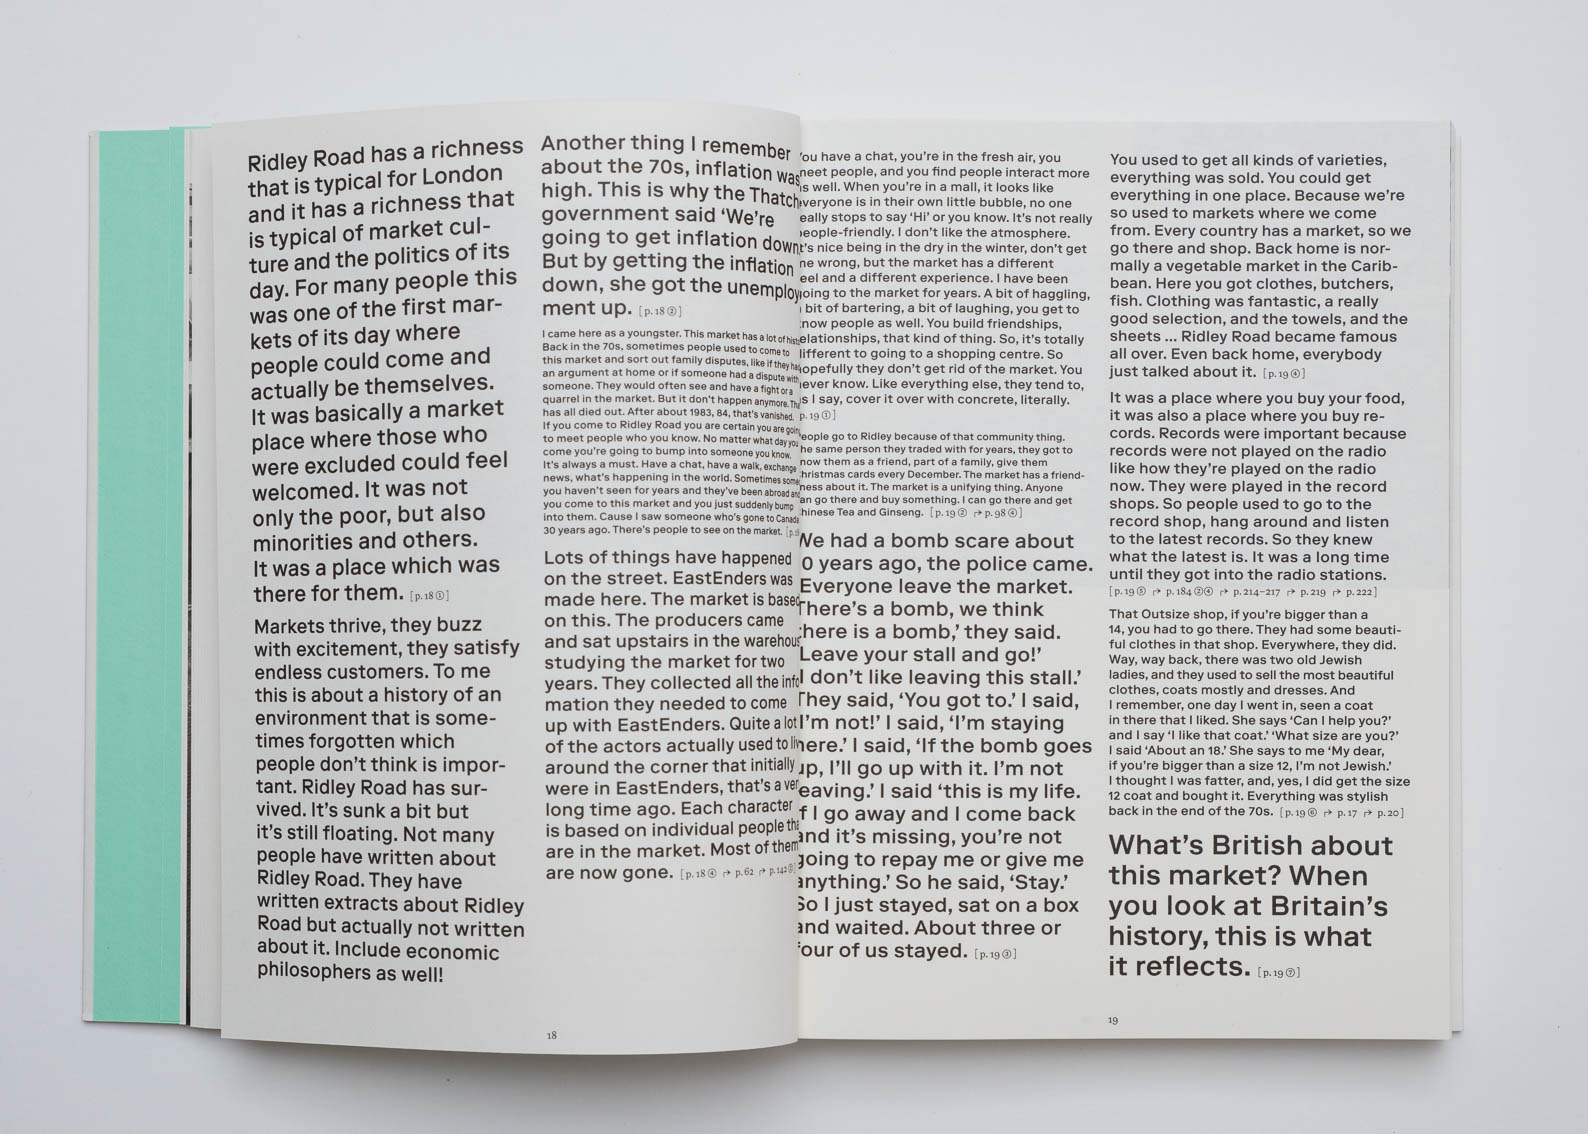 Ridley Road has a richness
that is typical for London
and it has a richness that
is typical of market cul-
ture and the politics of its
day. For many people this
was one of the first mar-
kets of its day where
people could come and
actually be themselves.
It was basically a market
place where those who
were excluded could feel
welcomed. It was not
only the poor, but also
minorities and others.
It was a place which was
there for them. [p.18①]
Markets thrive, they buzz
with excitement, they satisfy
endless customers. To me
this is about a history of an
environment that is some-
times forgotten which
people don't think is impor-
tant. Ridley Road has sur-
vived. It's sunk a bit but
it's still floating. Not many
people have written about
Ridley Road. They have
written extracts about Ridley
Road but actually not written
about it. Include economic
philosophers as well!
Another thing I remember
about the 70s, inflation was
high. This is why the Thatch
government said ‘We're
going to get inflation down
But by getting the inflation
down, she got the unemploy
ment up. [p.18②]
I came here as a youngster. This market has a lot of
Back in the 70s, sometimes people used to come to
this market and sort out family disputes, like if they had
an argument at home or if someone had a dispute with
someone. They would often see and have a fight or a
quarrel in the market. But it don't happen anymore.
has all died out. After about 1983, 84, that's vanished.
If you come to Ridley Road you are certain you are going
to meet people who you know. No matter what day you
come you're going to bump into someone you know.
It's always a must. Have a chat, have a walk, exchange
news, what's happening in the world. Sometimes some
you haven't seen for years and they've been abroad and
you come to this market and you just suddenly bump
into them. Cause I saw someone who's gone to Canada
30 years ago. There's people to see on the market.
Lots of things have happened
on the street. EastEnders was
made here. The market is based
on this. The producers came
and sat upstairs in the warehous
studying the market for two
years. They collected all the info
mation they needed to come
up with EastEnders. Quite a lot
of the actors actually used to liv
around the corner that initially
were in EastEnders, that's a ver
long time ago. Each character
is based on individual people tha
are in the market. Most of them
are now gone. [p.18④ ↱ p.62 ↱ p.142⑧]
18
ou have a chat, you're in the fresh air, you
meet people, and you find people interact more
as well. When you're in a mall, it looks like
everyone is in their own little bubble, no one
eally stops to say ‘Hi’ or you know. It's not really
people-friendly. I don't like the atmosphere.
t's nice being in the dry in the winter, don't get
me wrong, but the market has a different
eel and a different experience. I have been
going to the market for years. A bit of haggling,
bit of bartering, a bit of laughing, you get to
know people as well. You build friendships,
elationships, that kind of thing. So, it's totally
different to going to a shopping centre. So
opefully they don't get rid of the market. You
never know. Like everything else, they tend to,
as I say, cover it over with concrete, literally.
p.19①]
eople go to Ridley because of that community thing.
he same person they traded with for years, they got to
now them as a friend, part of a family, give them
hristmas cards every December. The market has a friend-
ness about it. The market is a unifying thing. Anyone
an go there and buy something. I can go there and get
hinese Tea and Ginseng. [p.19② ↱ p.98④]
We had a bomb scare about
0 years ago, the police came.
Everyone leave the market.
There's a bomb, we think
here is a bomb,’ they said.
Leave your stall and go!’
I don't like leaving this stall.’
They said, ‘You got to.’ I said,
I'm not!’ I said, ‘I'm staying
here.’ I said, ‘If the bomb goes
up, I'll go up with it. I'm not
eaving.’ I said ‘this is my life.
f I go away and I come back
and it's missing, you're not
going to repay me or give me
anything.’ So he said, ‘Stay.’
So I just stayed, sat on a box
and waited. About three or
four of us stayed. [p.19③]
You used to get all kinds of varieties,
everything was sold. You could get
everything in one place. Because we're
so used to markets where we come
from. Every country has a market, so we
go there and shop. Back home is nor-
mally a vegetable market in the Carib-
bean. Here you got clothes, butchers,
fish. Clothing was fantastic, a really
good selection, and the towels, and the
sheets ... Ridley Road became famous
all over. Even back home, everybody
just talked about it. [p.19④]
It was a place where you buy your food,
it was also a place where you buy re-
cords. Records were important because
records were not played on the radio
like how they're played on the radio
now. They were played in the record
shops. So people used to go to the
record shop, hang around and listen
to the latest records. So they knew
what the latest is. It was a long time
until they got into the radio stations.
[p.19⑤ ↱ p.184②④ ↱ p.214–217 ↱ p.219 ↱ p.222]
That Outsize shop, if you're bigger than a
14, you had to go there. They had some beauti-
ful clothes in that shop. Everywhere, they did.
Way, way back, there was two old Jewish
ladies, and they used to sell the most beautiful
clothes, coats mostly and dresses. And
I remember, one day I went in, seen a coat
in there that I liked. She says ‘Can I help you?’
and I say ‘I like that coat.’ ‘What size are you?’
I said ‘About an 18.’ She says to me ‘My dear,
if you're bigger than a size 12, I'm not Jewish.’
I thought I was fatter, and, yes, I did get the size
12 coat and bought it. Everything was stylish
back in the end of the 70s. [p.19⑥ ↱ p.17 ↱ p.20]
What's British about
this market? When
you look at Britain's
history, this is what
it reflects. [p.19⑦]
19